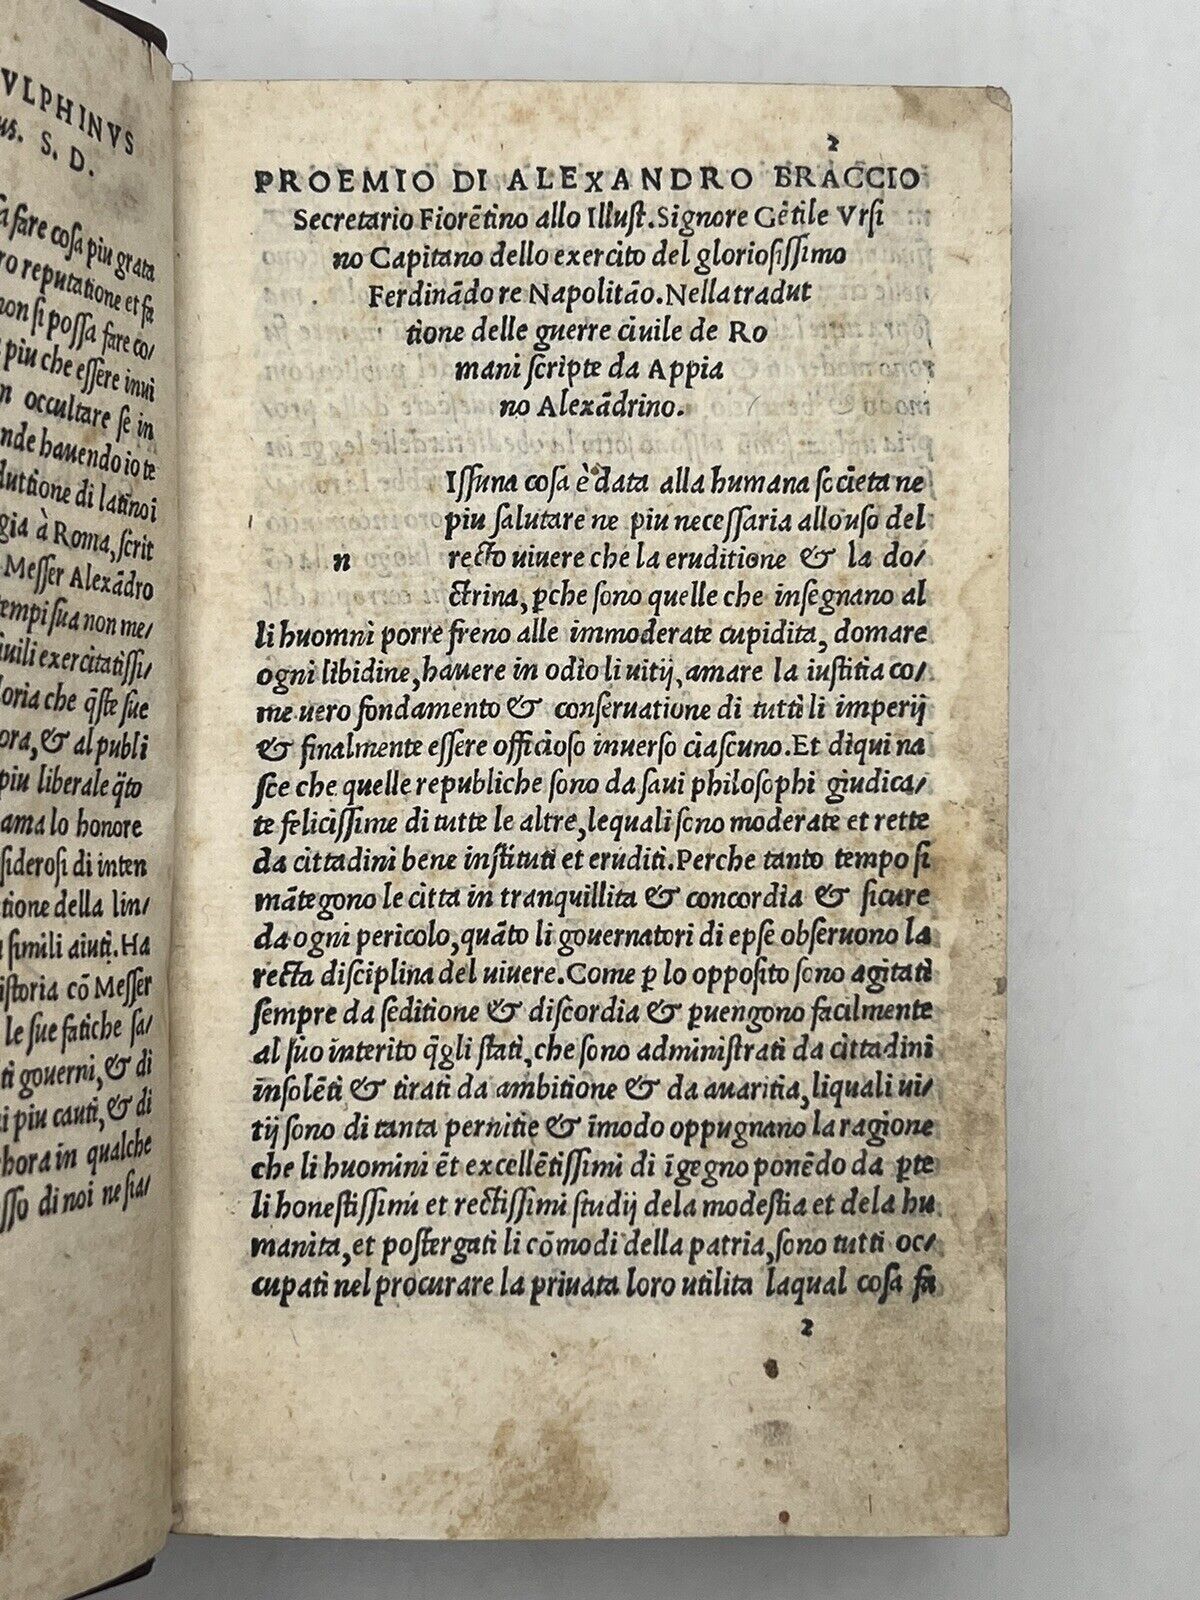 VLPHINVS
us. S. D.
fare cosa piu grata
ro reputatione et fa
non si possa fare co/
piu che essere inui
n occultare se in
nde hauendo io te
duttione di latino i
gia à Roma, scrit
Messer Alexãdro
tempi sua non me/
iuili exercitatissi/
loria che q̃ste sue
ora, & al publi
piu liberale q̃to
ama lo honore
siderosi di inten
tione della lin/
simili aiuti. Ha
istoria cõ Messer
le sue fatiche sa/
ti gouerni, & di
i piu cauti, & di
hora in qualche
sso di noi ne sia/
2
PROEMIO DI ALEXANDRO BRACCIO
Secretario Fiorẽtino allo Illust. Signore Gẽtile Vrsi
no Capitano dello exercito del gloriosissimo
Ferdinãdo re Napolitão. Nella tradut
tione delle guerre ciuile de Ro
mani scripte da Appia
no Alexãdrino.
Issuna cosa è data alla humana societa ne
piu salutare ne piu necessaria allo uso del
n recto uiuere che la eruditione & la do/
ctrina, ꝑche sono quelle che insegnano al
li huomni porre freno alle immoderate cupidita, domare
ogni libidine, hauere in odio li uitij, amare la iustitia co/
me uero fondamento & conseruatione di tutti li imperij
& finalmente essere officioso inuerso ciascuno. Et di qui na
sce che quelle republiche sono da saui philosophi giudica/
te felicissime di tutte le altre, lequali sono moderate et rette
da cittadini bene instituti et eruditi. Perche tanto tempo si
mãtegono le citta in tranquillita & concordia & sicure
da ogni pericolo, quãto li gouernatori di epse obseruono la
recta disciplina del uiuere. Come ꝑ lo opposito sono agitati
sempre da seditione & discordia & ꝑuengono facilmente
al suo interito q̃gli stati, che sono administrati da cittadini
insolẽti & tirati da ambitione & da auaritia, liquali ui/
tij sono di tanta pernitie & ĩmodo oppugnano la ragione
che li huomini ẽt excellẽtissimi di ĩgegno ponẽdo da ꝑte
li honestissimi et rectissimi studij dela modestia et dela hu
manita, et postergati li cõmodi della patria, sono tutti oc/
cupati nel procurare la priuata loro utilita laqual cosa fa
2